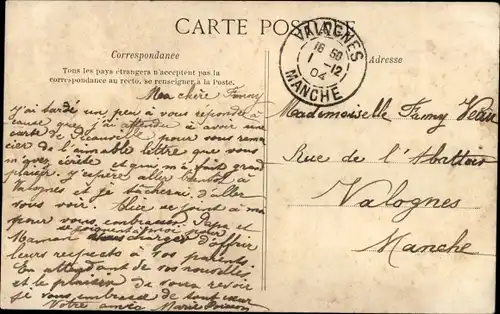 CARTE POSTALE
VALOGNES
16 50
1 -12
04
MANCHE
Correspondance
Adresse
Tous les pays étrangers n'acceptent pas la
correspondance au recto, se renseigner à la Poste.
Ma chère Fanny
J'ai tardé un peu à vous répondre à
cause que j'ai attendu à avoir une
carte de Deauville pour vous remer
cier de l'aimable lettre que vous
m'avez écrite et qui m'a fait grand
plaisir. J'espère aller bientôt à
Valognes et je tacherai d'aller
vous voir. Alice se joint à moi
pour vous embrasser. Papa et
se joignent à moi pour
Maman d'offrir
leurs respects à vos parents.
En attendant de vos nouvelles
et le plaisir de vous revoir
je vous embrasse de tout cœur
Votre amie Marie
Mademoiselle Fanny
Rue de l'Abattoir
Valognes
Manche